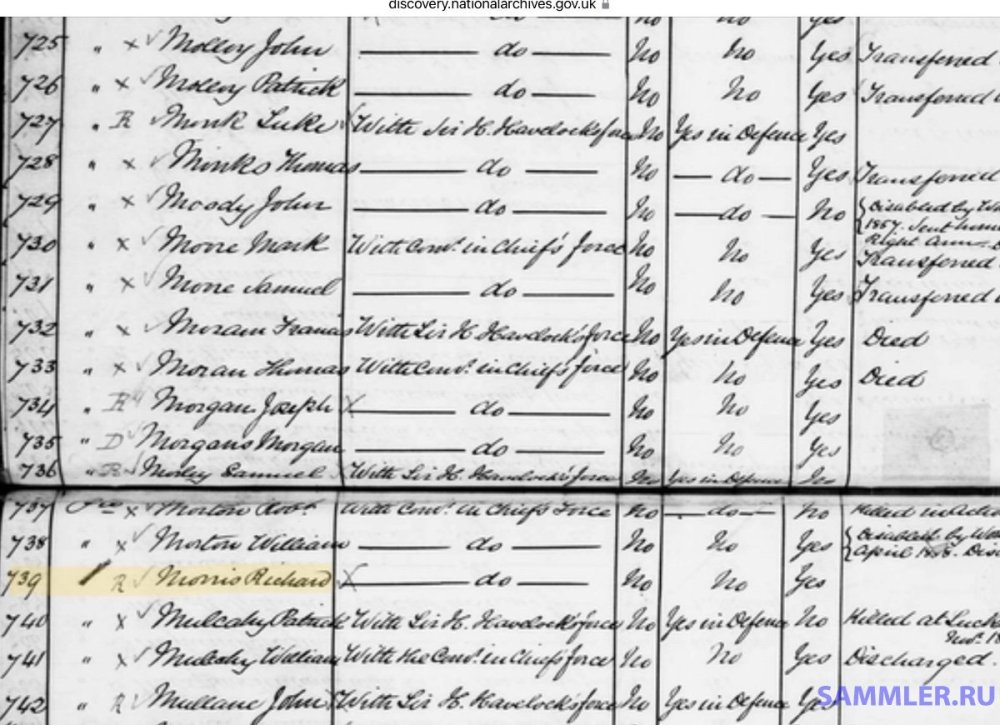 discovery.nationalarchives.gov.uk
No No Yes
725 " x Molloy John do No No Yes Transferred
726 " x Molloy Patrick do No No Yes Transferred
727 " R Monk Luke With Sir H. Havelocks force No Yes in Defence Yes
728 " x Monks Thomas do No do Yes Transferred
729 " x Moody John do No do No Disabled by
1857. Sent home
Right Arm
730 " x Moore Mark With Comr. in Chief's force No No Yes Transferred
731 " x Moore Samuel do No No Yes Transferred
732 " x Moram Francis With Sir H Havelock's force No Yes in Defence Yes Died
733 " x Moran Thomas With Comr. in Chief's force No No Yes Died
734 " R Morgan Joseph x do No No Yes
735 " D Morgans Morgan do No No Yes
736 " R Morley Samuel With Sir H. Havelock's force No Yes in Defence No
737 x Morton Robt. With Comr. in Chief's Force No do No Killed in
738 " x Morton William do No No Yes Disabled by
April 1858.
739 R Morris Richard x do No No Yes
740 " x Mulcahy Patrick With Sir H. Havelock's force No Yes in Defence No Killed at
741 " x Mulcahy William With the Comr. in Chief's force No No Yes Discharged.
742 " R Mullane John With Sir H. Havelock's force No Yes in Defence Yes
SAMMLER.RU